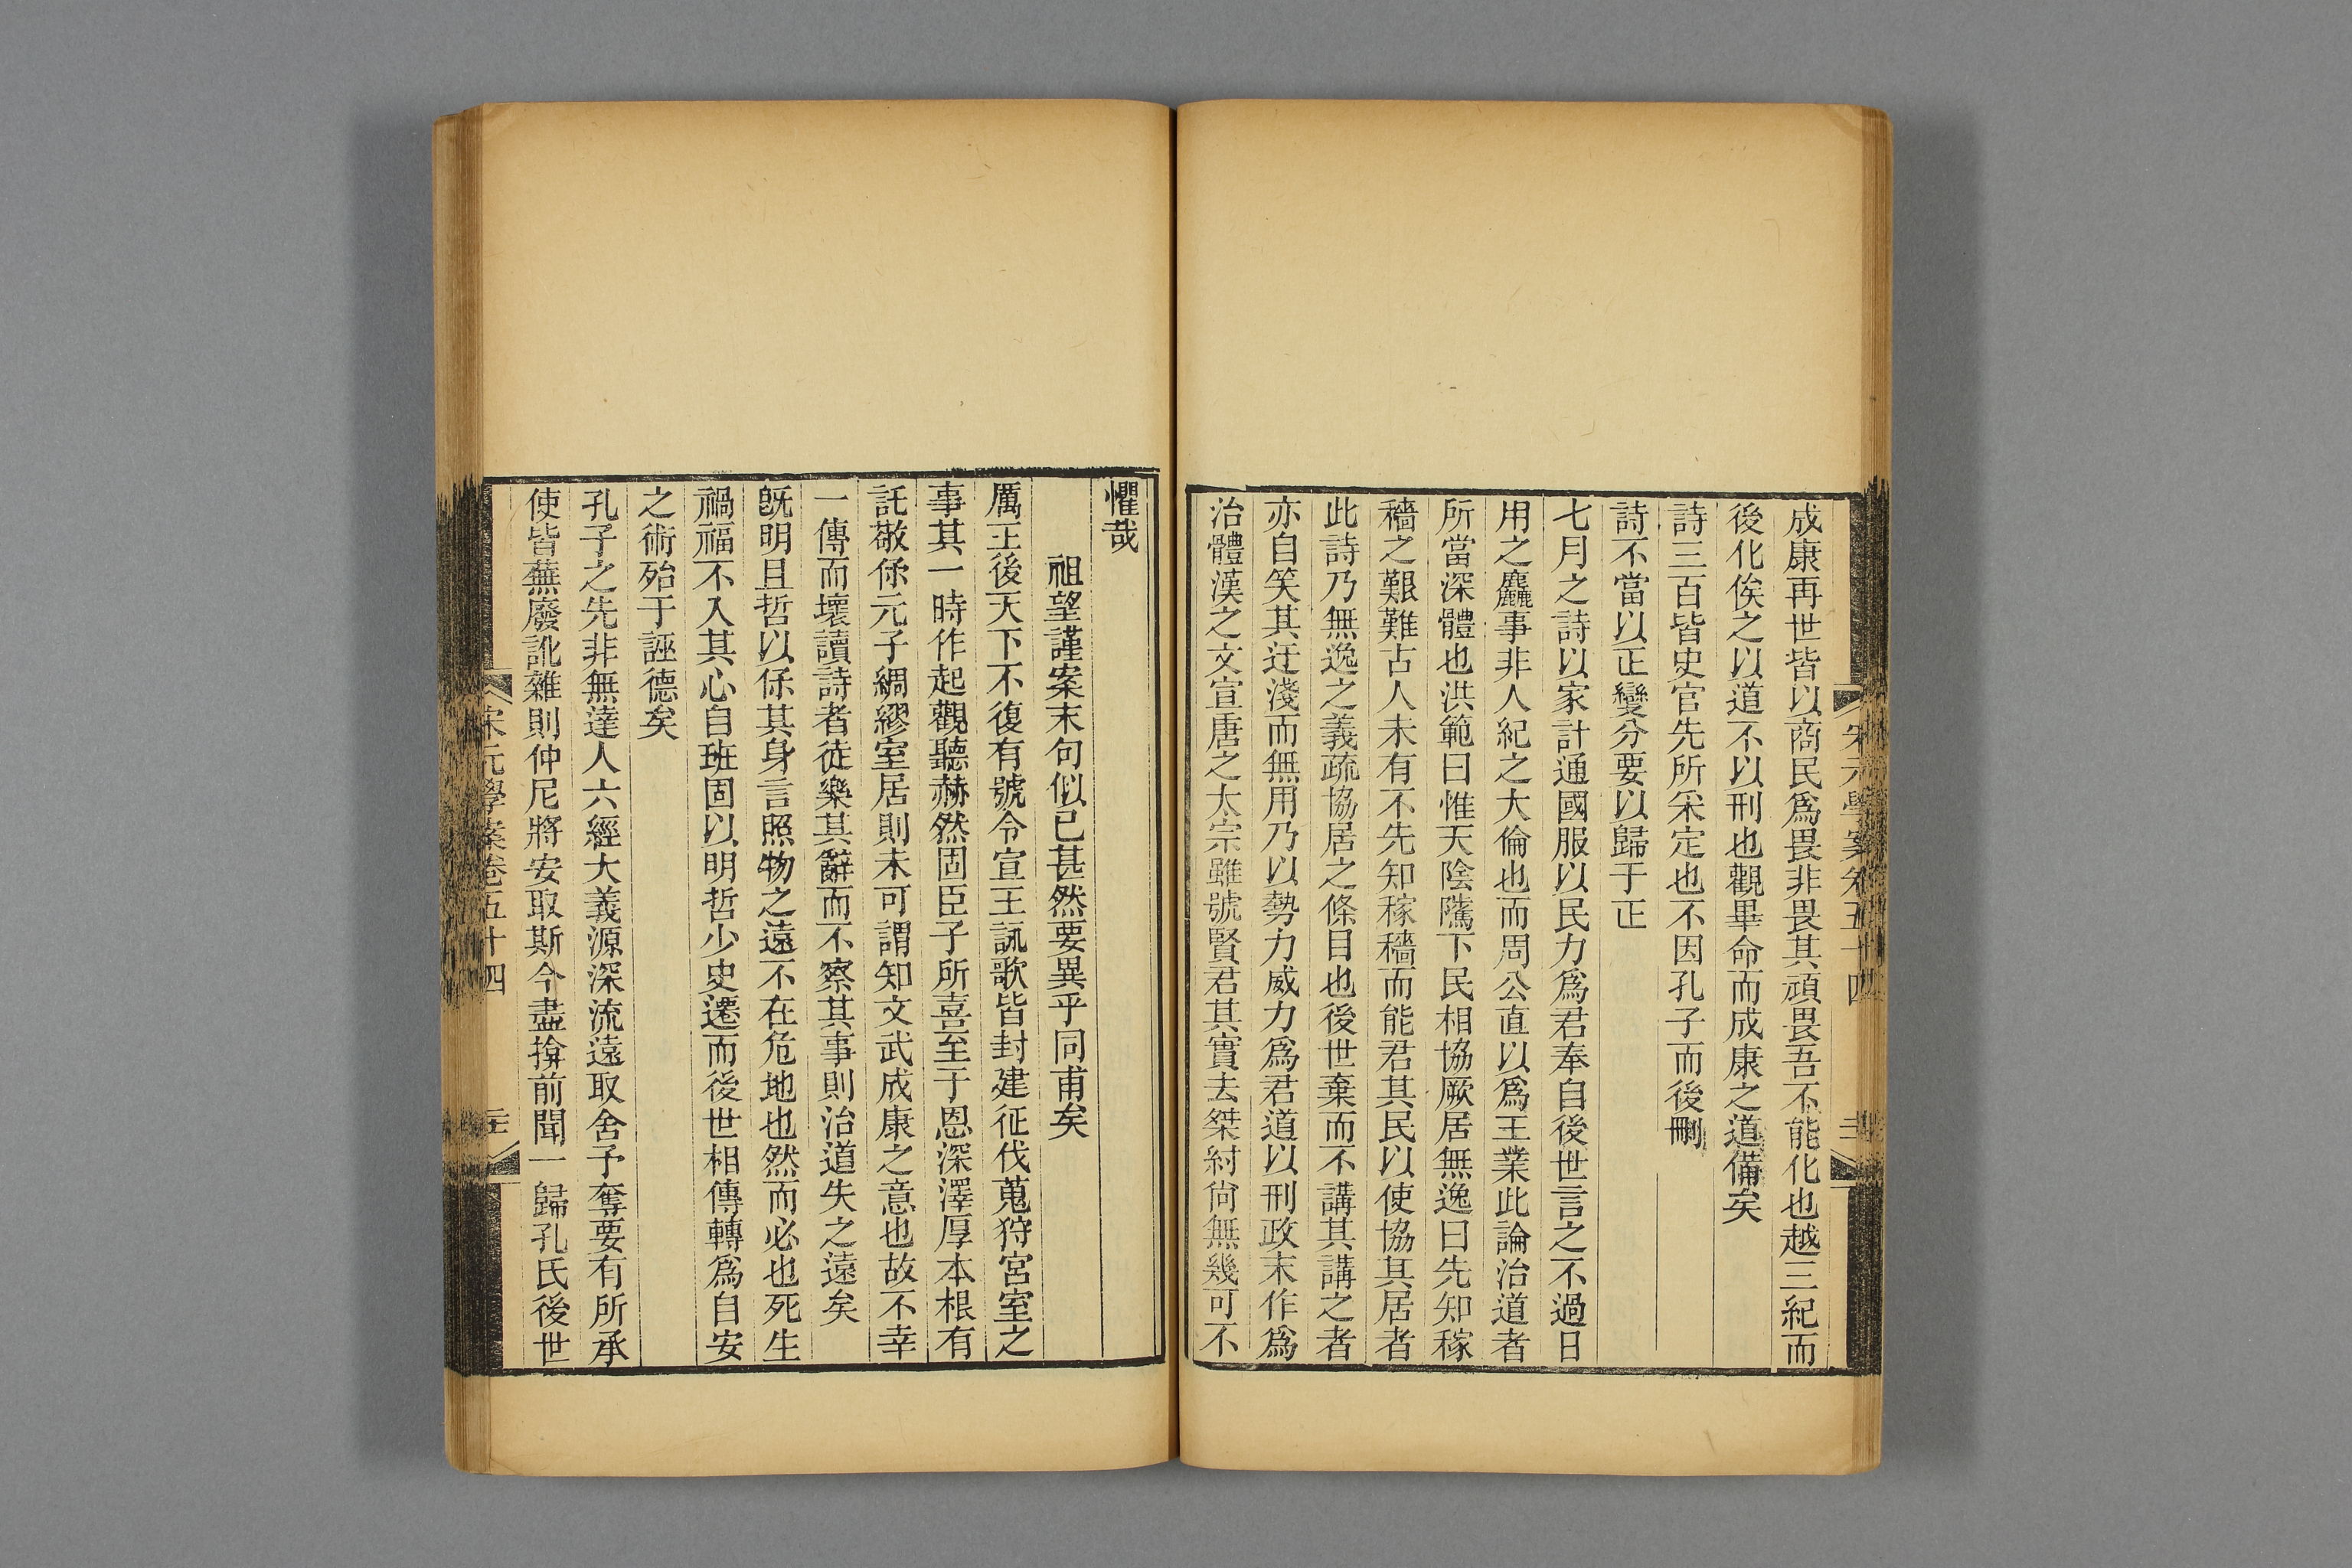 成康再世皆以商民爲畏非畏其頑畏吾不能化也越三紀而
後化俟之以道不以刑也觀畢命而成康之道備矣
詩三百皆史官先所采定也不因孔子而後刪
詩不當以正變分要以歸于正
七月之詩以家計通國服以民力爲君奉自後世言之不過日
用之麤事非人紀之大倫也而周公直以爲王業此論治道者
所當深體也洪範曰惟天陰隲下民相協厥居無逸曰先知稼
穡之艱難古人未有不先知稼穡而能君其民以使協其居者
此詩乃無逸之義疏協居之條目也後世棄而不講其講之者
亦自笑其迂淺而無用乃以勢力威力爲君道以刑政末作爲
治體漢之文宣唐之太宗雖號賢君其實去桀紂尙無幾可不
懼哉
祖望謹案末句似已甚然要異乎同甫矣
厲王後天下不復有號令宣王訊歌皆封建征伐蒐狩宮室之
事其一時作起觀聽赫然固臣子所喜至于恩深澤厚本根有
託敬保元子綢繆室居則未可謂知文武成康之意也故不幸
一傳而壞讀詩者徒樂其辭而不察其事則治道失之遠矣
旣明且哲以保其身言照物之遠不在危地也然而必也死生
禍福不入其心自班固以明哲少史遷而後世相傳轉爲自安
之術殆于誣德矣
孔子之先非無達人六經大義源深流遠取舍予奪要有所承
使皆蕪廢訛雜則仲尼將安取斯今盡揜前聞一歸孔氏後世
宋元學案卷五十四